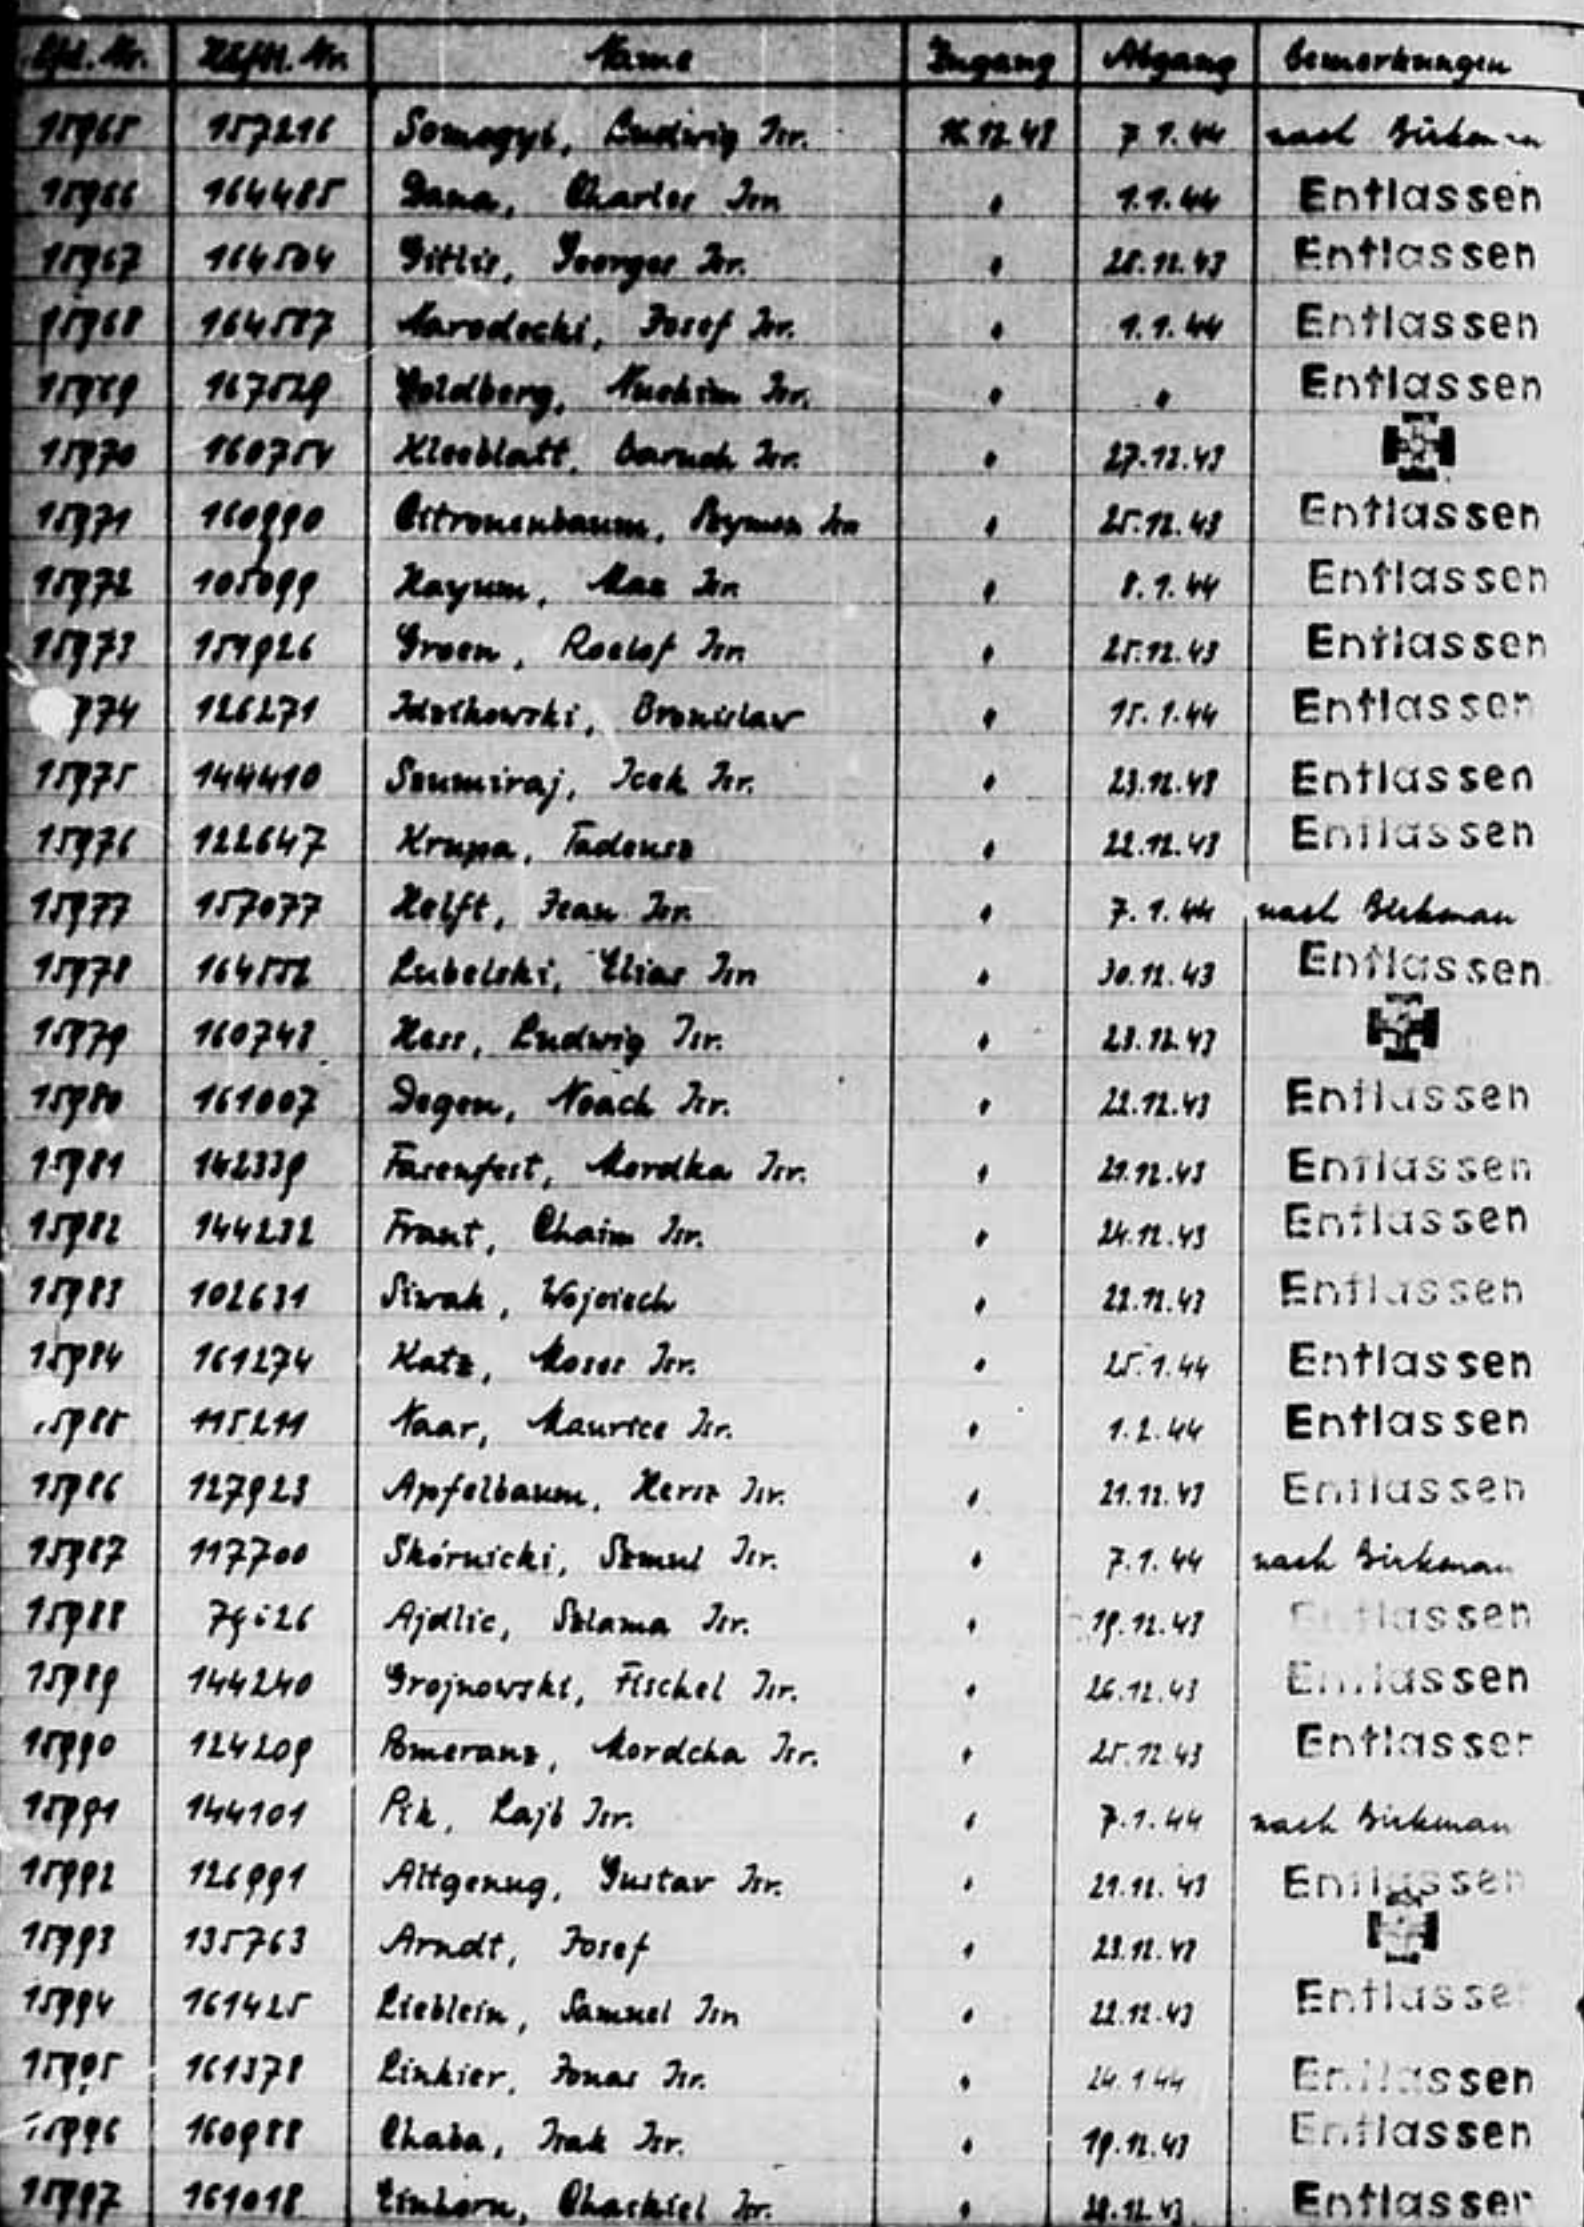 Lfd. Nr. Häftl. Nr. Name Zugang Abgang Bemerkungen
15965 157216 Somogyi, Ludwig Isr. 16.12.43 7.1.44 nach Birkenau
15966 164485 Dana, Charles Isr. " 1.1.44 Entlassen
15967 164504 Gitlis, Georges Isr. " 28.12.43 Entlassen
15968 164587 Narodecki, Josef Isr. " 1.1.44 Entlassen
15969 167529 Goldberg, Nuchim Isr. " " Entlassen
15970 160754 Kleeblatt, Baruch Isr. " 27.12.43
15971 160990 Citronenbaum, Szymon Isr. " 25.12.43 Entlassen
15972 105099 Kayum, Max Isr. " 8.1.44 Entlassen
15973 151926 Groen, Roelof Isr. " 25.12.43 Entlassen
974 126271 Bronislaw " 15.1.44 Entlassen
15975 144410 Szumiraj, Icek Isr. " 23.12.43 Entlassen
15976 122647 Krupa, Tadeusz " 22.12.43 Entlassen
15977 157077 Helft, Jean Isr. " 7.1.44 nach Birkenau
15978 164552 Lubelski, Elias Isr. " 30.12.43 Entlassen
15979 160743 Hess, Ludwig Isr. " 23.12.43
15980 161007 Degen, Noach Isr. " 22.12.43 Entlassen
15981 142339 Fasenfest, Mordka Isr. " 21.12.43 Entlassen
15982 144232 Frant, Chaim Isr. " 24.12.43 Entlassen
15983 102631 Siwak, Wojciech " 22.12.43 Entlassen
15984 161274 Katz, Moses Isr. " 25.1.44 Entlassen
15985 115211 Naar, Maurice Isr. " 1.2.44 Entlassen
15986 127923 Apfelbaum, Hersz Isr. " 21.12.43 Entlassen
15987 117700 Skórnicki, Szmul Isr. " 7.1.44 nach Birkenau
15988 Ajdlic, Szlama Isr. " 19.12.43 Entlassen
15989 144240 Grojnowski, Fischel Isr. " 26.12.43 Entlassen
15990 124209 Pomeranz, Mordcha Isr. " 25.12.43 Entlassen
15991 144101 Pik, Lajb Isr. " 7.1.44 nach Birkenau
15992 126991 Altgenug, Gustav Isr. " 21.12.43 Entlassen
15993 135763 Arndt, Josef " 23.12.43
15994 161425 Lieblein, Samuel Isr. " 22.12.43 Entlassen
15995 161378 Linkier, Jonas Isr. " 24.1.44 Entlassen
15996 160988 Chaba, Isak Isr. " 19.12.43 Entlassen
15997 161018 Einhorn, Chaskiel Isr. " 28.12.43 Entlassen